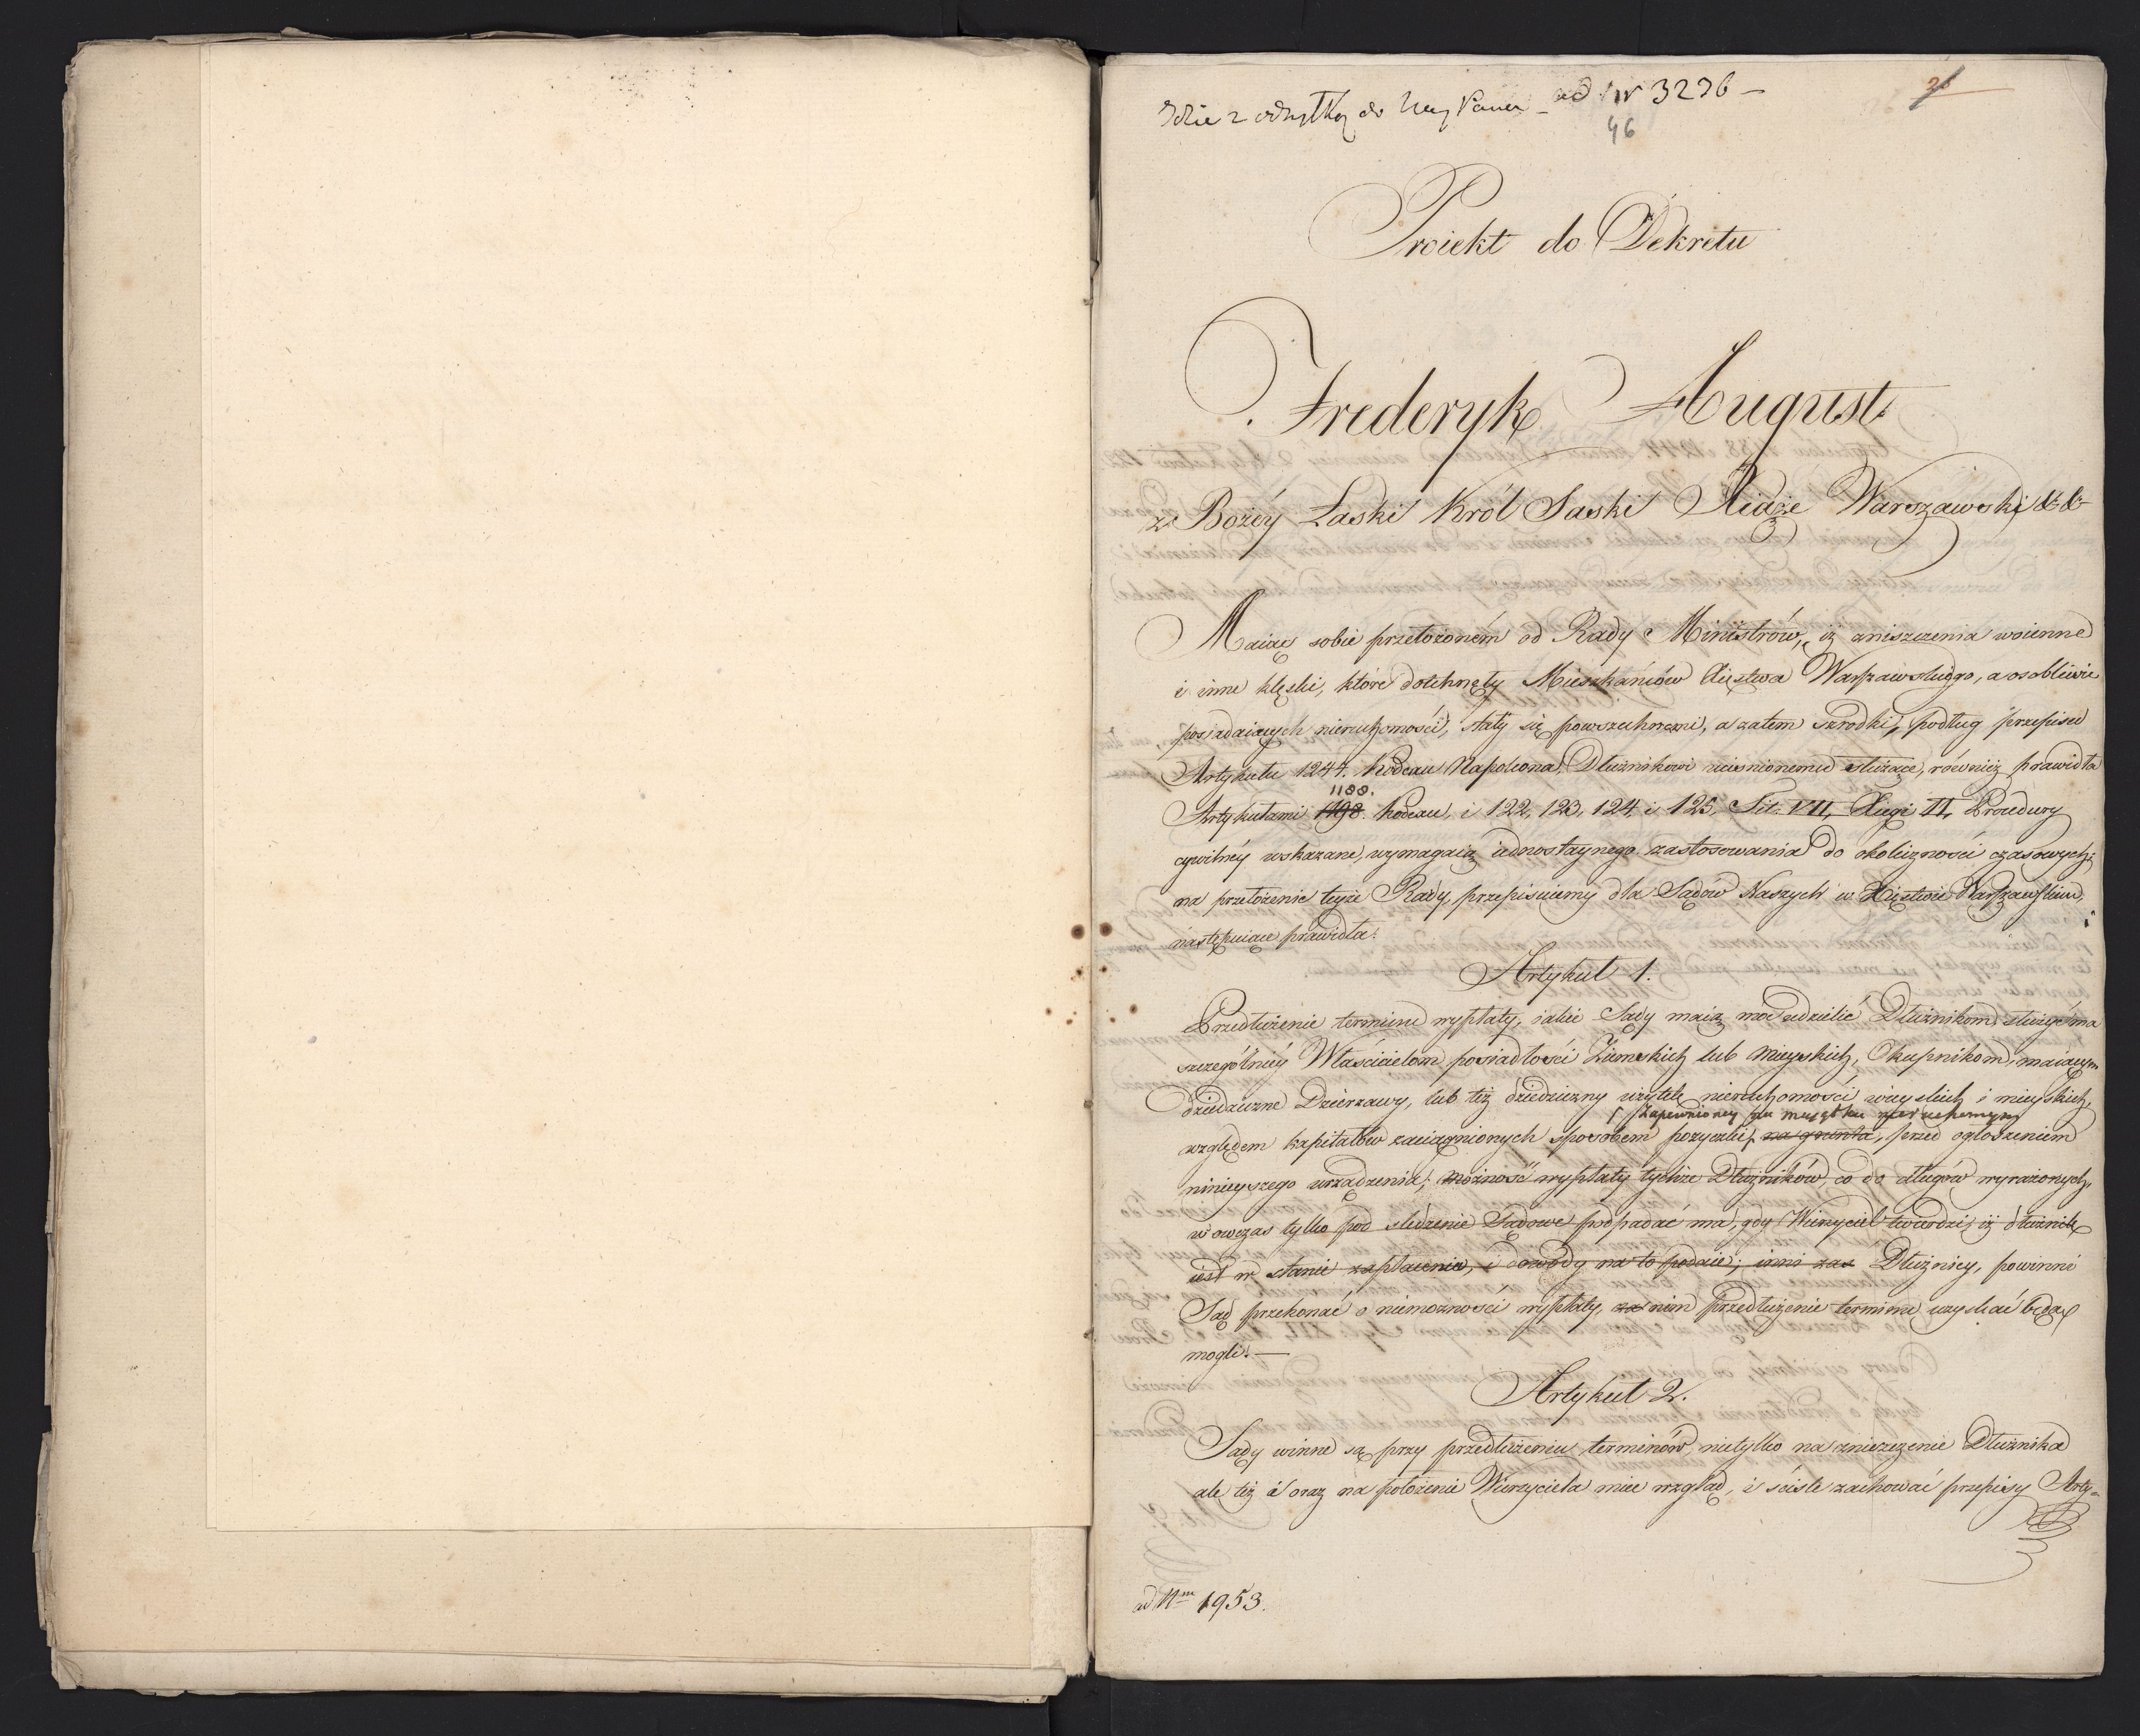 ad Nr 3236 —
46
26
Proiekt do Dekretu
Frederyk August
z Bożéy Łaski Król Saski Xiąże Warszawski &c &c
Maiąc sobie przełożoném od Rady Ministrów, iż zniszczenia woienne
i inne klęski, które dotchnęły Mieszkańców Xięstwa Warszawskiego, a osobliwie
posiadaiących nieruchomości, stały się powszechnemi, a zatem szrodki, podług przepisu
Artykułu 1244. Kodexu Napoleona, Dłużnikowi uciśnionemu służące, również prawidła
1188.
Artykułami 1198. Kodexu, i 122, 123, 124 i 125, Tit: VII, Xięgi II, Procedury
cywilnéy wskazane, wymagaią iednostaynego zastosowania do okoliczności czasowych;
na przełożenie teyże Rady, przepisuiemy dla Sądów Naszych w Xięstwie Warszawskim,
następuiące prawidła:
Artykuł 1.
Przedłużenie terminu wypłaty, iakie Sądy maią moc udzielić Dłużnikom, służyć ma
szczególniéy Właścicielom posiadłości Ziemskich lub Mieyskich, Okupnikom, maiącym
dziedziczne Dzierzawy, lub też dziedziczny użytek nieruchomości wieyskich i mieyskich,
zapewnioney na maiątku nieruchomym
względem kapitałów zaciągnionych sposobem pożyczki, na grunta, przed ogłoszeniem
ninieyszego urządzenia; możność wypłaty tychże Dłużników, co do długów wyrażonych,
w owczas tylko pod śledzenie Sądowe podpadać ma, gdy Wierzyciel twierdzi, iż dłużnik
iest w stanie zapłacenia, i dowody na to podaie; inni zaś Dłużnicy, powinni
Sąd przekonać o niemożności wypłaty, za nim przedłużenie terminu uzyskać będą
mogli. —
Artykuł 2.
Sądy winne są przy przedłużeniu terminów, nietylko na zniszczenie Dłużnika
ale też i oraz na położenie Wierzyciela mieć wzgląd, i ściśle zachować przepisy Arty-
ad Nm 1953.